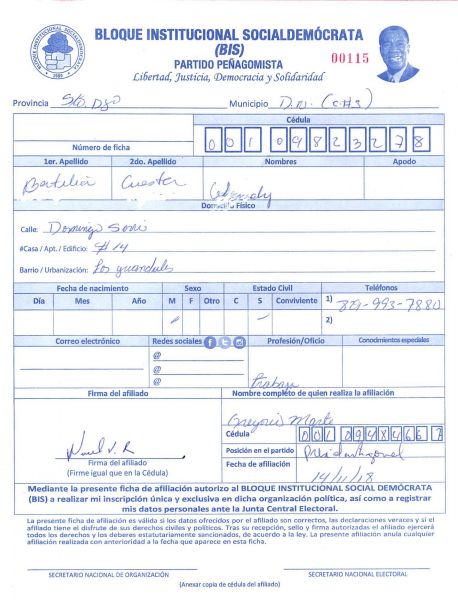 BLOQUE INSTITUCIONAL SOCIALDEMÓCRATA
BLOQUE INSTITUCIONAL SOCIALDEMÓCRATA
(BIS)
PARTIDO PEÑAGOMISTA
00115
Libertad, Justicia, Democracia y Solidaridad
Provincia Sto. Dgo Municipio D.N.
Cédula
Número de ficha 0 0 1 0 9 8 2 3 2 7 8
1er. Apellido 2do. Apellido Nombres Apodo
Cuester
Domicilio Físico
Calle: Domingo
#Casa / Apt. / Edificio: #14
Barrio / Urbanización: Los guandules
Fecha de nacimiento Sexo Estado Civil Teléfonos
Día Mes Año M F Otro C S Conviviente 1) 829-993-7880
2)
Correo electrónico Redes sociales Profesión/Oficio Conocimientos especiales
@
@
@
Firma del afiliado Nombre completo de quien realiza la afiliación
Gregorio
Cédula 001
Posición en el partido
Firma del afiliado
(Firme igual que en la Cédula)
Fecha de afiliación 14/11/18
Mediante la presente ficha de afiliación autorizo al BLOQUE INSTITUCIONAL SOCIAL DEMÓCRATA
(BIS) a realizar mi inscripción única y exclusiva en dicha organización política, así como a registrar
mis datos personales ante la Junta Central Electoral.
La presente ficha de afiliación es válida si los datos ofrecidos por el afiliado son correctos, las declaraciones veraces y si el
afiliado tiene el disfrute de sus derechos civiles y políticos. Tras su recepción, sello y firma autorizadas el afiliado ejercerá
todos los derechos y los deberes estatutariamente sancionados, de acuerdo a la ley. La presente afiliación anula cualquier
afiliación realizada con anterioridad a la fecha que aparece en esta ficha.
SECRETARIO NACIONAL DE ORGANIZACIÓN SECRETARIO NACIONAL ELECTORAL
(Anexar copia de cédula del afiliado)